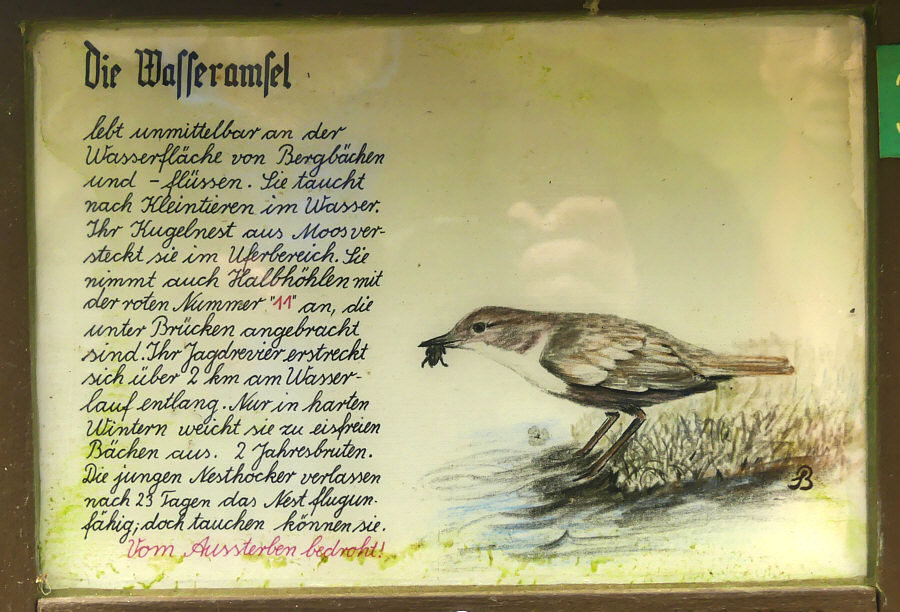 Die Wasseramsel
lebt unmittelbar an der
Wasserfläche von Bergbächen
und - flüssen. Sie taucht
nach Kleintieren im Wasser.
Ihr Kugelnest aus Moosver-
steckt sie im Uferbereich. Sie
nimmt auch Halbhöhlen mit
der roten Nummer "11" an, die
unter Brücken angebracht
sind. Ihr Jagdrevier erstreckt
sich über 2 km am Wasser-
lauf entlang. Nur in harten
Wintern weicht sie zu eisfreien
Bächen aus. 2 Jahresbruten.
Die jungen Nesthocker verlassen
nach 23 Tagen das Nest flugun-
fähig; doch tauchen können sie.
Vom Aussterben bedroht!